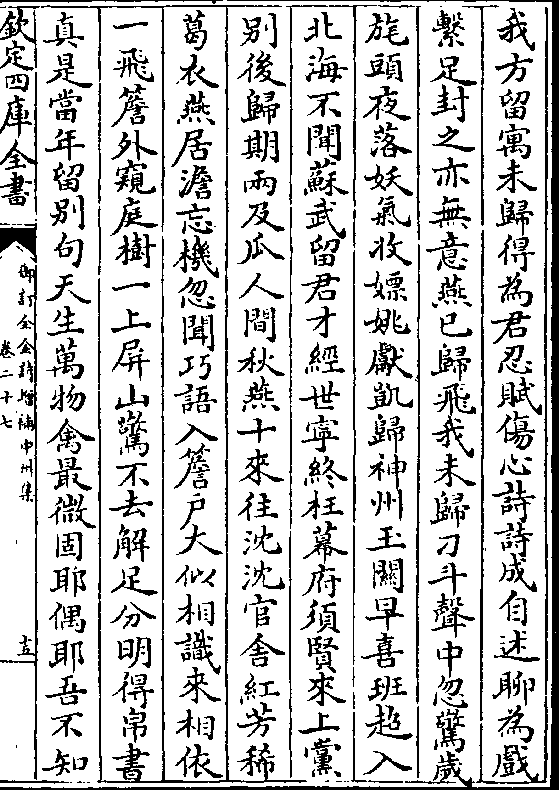 我方留寓未歸得為君忍賦傷心詩詩成自述聊為戲
繫足封之亦無意燕已歸飛我未歸刁斗聲中忽驚歲
旄頭夜落妖氣收嫖姚獻凱歸神州玉關早喜班超入
北海不聞蘇武留君才經世寧終枉幕府須賢來上黨
别後歸期兩及瓜人間秋燕十來往沈沈官舍紅芳稀
葛衣燕居澹忘機忽聞巧語入簷戶大似相識來相依
一飛簷外窺庭樹一上屏山驚不去解足分明得帛書
真是當年留别句天生萬物禽最微固耶偶耶吾不知
欽定四庫全書
御訂全金詩增補中州集
卷二十七
十五